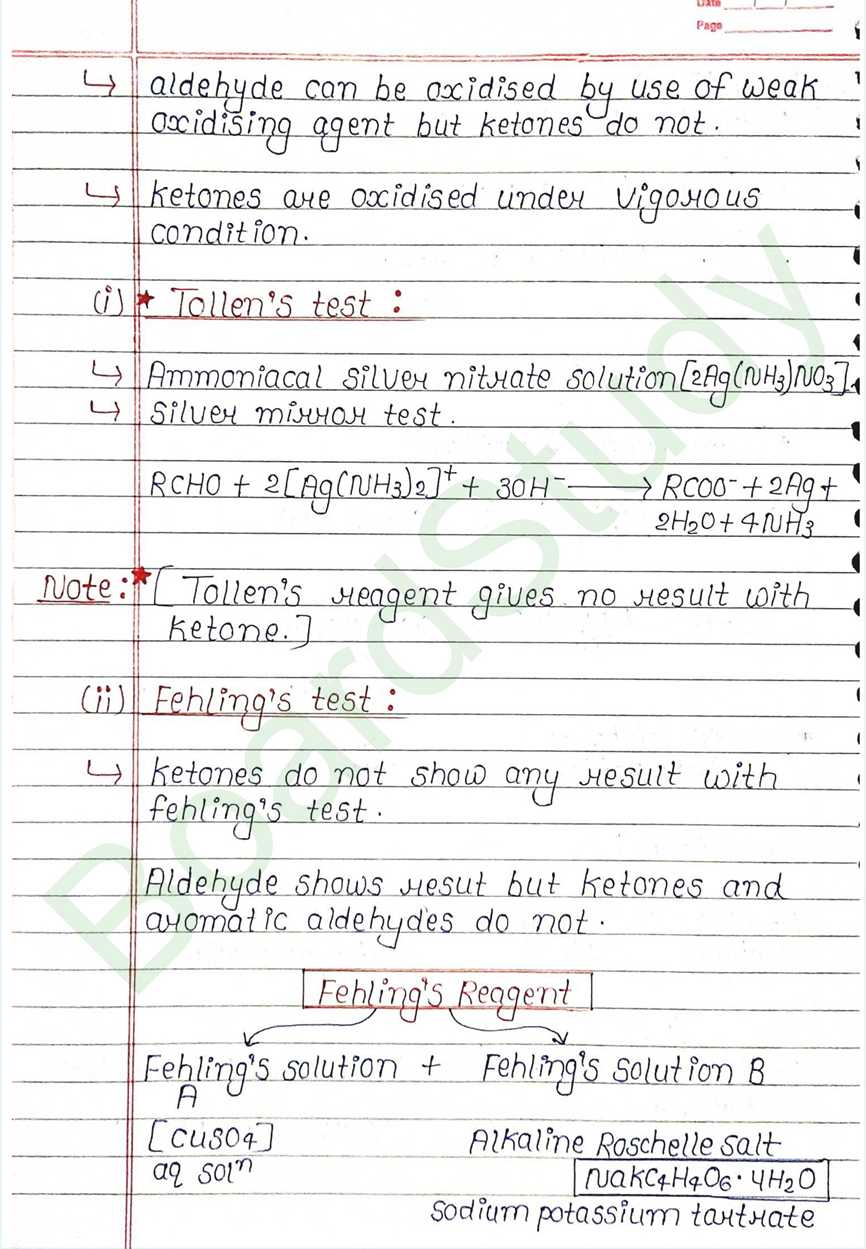 Date
Page
↳ aldehyde can be oxidised by use of weak
oxidising agent but ketones do not.
↳ ketones are oxidised under vigorous
condition.
(i) ★ Tollen's test :
↳ Ammoniacal silver nitrate solution [2Ag(NH3)NO3].
↳ silver mirror test.
RCHO + 2[Ag(NH3)2]⁺ + 3OH⁻ ⟶ RCOO⁻ + 2Ag +
2H2O + 4NH3
Note : ★ [ Tollen's reagent gives no result with
ketone. ]
(ii) Fehling's test :
↳ ketones do not show any result with
fehling's test.
Aldehyde shows resut but ketones and
aromatic aldehydes do not.
Fehling's Reagent
Fehling's solution + Fehling's solution B
A
[CuSO4] Alkaline Roschelle salt
aq solⁿ NaKC4H4O6·4H2O
sodium potassium tartrate
BoardStudy